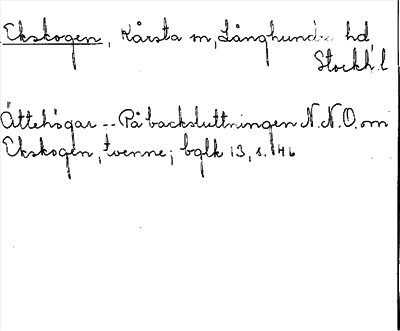 Ekskogen, Kårsta sn, Långhundr. hd
Stockh. l
Ättehögar -- På backsluttningen N.N.O. om
Ekskogen, tvenne; bglk 13, s. 146